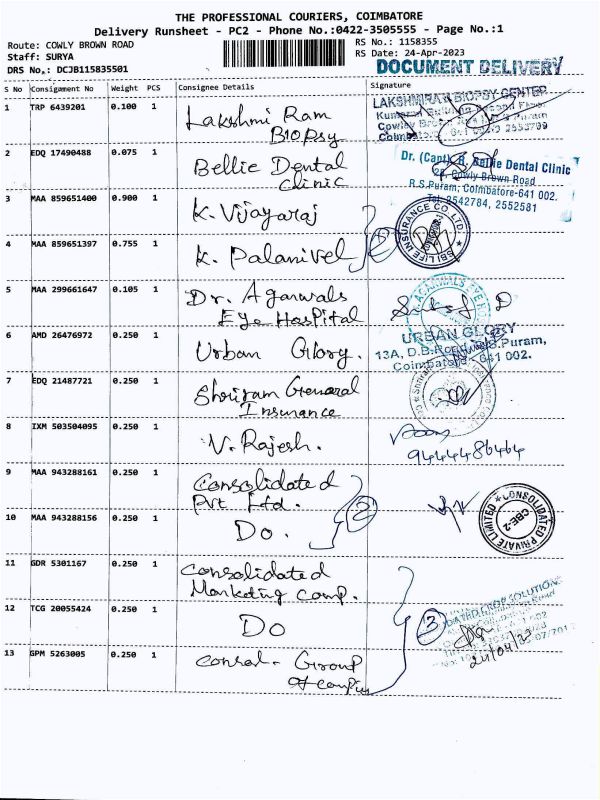 THE PROFESSIONAL COURIERS, COIMBATORE
Delivery Runsheet - PC2 - Phone No.:0422-3505555 - Page No.:1
Route: COWLY BROWN ROAD
Staff: SURYA
DRS No.: DCJB115835501
RS No.: 1158355
RS Date: 24-Apr-2023
DOCUMENT DELIVERY
S No Consignment No Weight PCS Consignee Details Signature
1 TRP 6439201 0.100 1 Lakshmi Ram
Biopsy
LAKSHMIRAM BIOPSY CENTER
2 EDQ 17490488 0.075 1 Bellie Dental
Clinic
Dr. (Capt) R. Bellie Dental Clinic
Cowly Brown Road
R.S.Puram, Coimbatore-641 002.
Tel: 2542784, 2552581
3 MAA 859651400 0.900 1 K. Vijayaraj
4 MAA 859651397 0.755 1 K. Palanivel
SBI LIFE INSURANCE CO. LTD.
5 MAA 299661647 0.105 1 Dr. Agarwals
Eye Hospital
6 AMD 26476972 0.250 1 Urban Glory.
URBAN GLORY
13A, D.B. Road, R.S.Puram,
Coimbatore - 641 002.
7 EDQ 21487721 0.250 1 Shriram General
Insurance
8 IXM 503504095 0.250 1 V. Rajesh.
9444486464
9 MAA 943288161 0.250 1 Consolidated
Pvt Ltd.
10 MAA 943288156 0.250 1 Do.
2
CONSOLIDATED PRIVATE LIMITED
CBE-2
11 GDR 5301167 0.250 1 Consolidated
Marketing Comp.
12 TCG 20055424 0.250 1 Do
3
24/04/23
13 GPM 5263005 0.250 1 Consol- Group
of compies